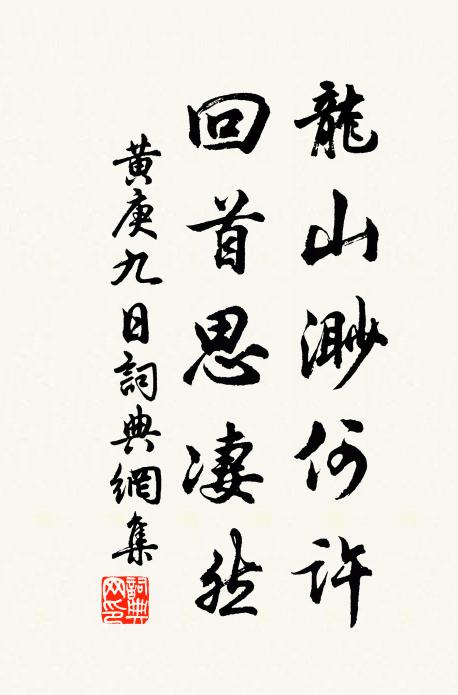 龍山渺何許
回首思淒然
黃庚九日詞典網集
詞典網印